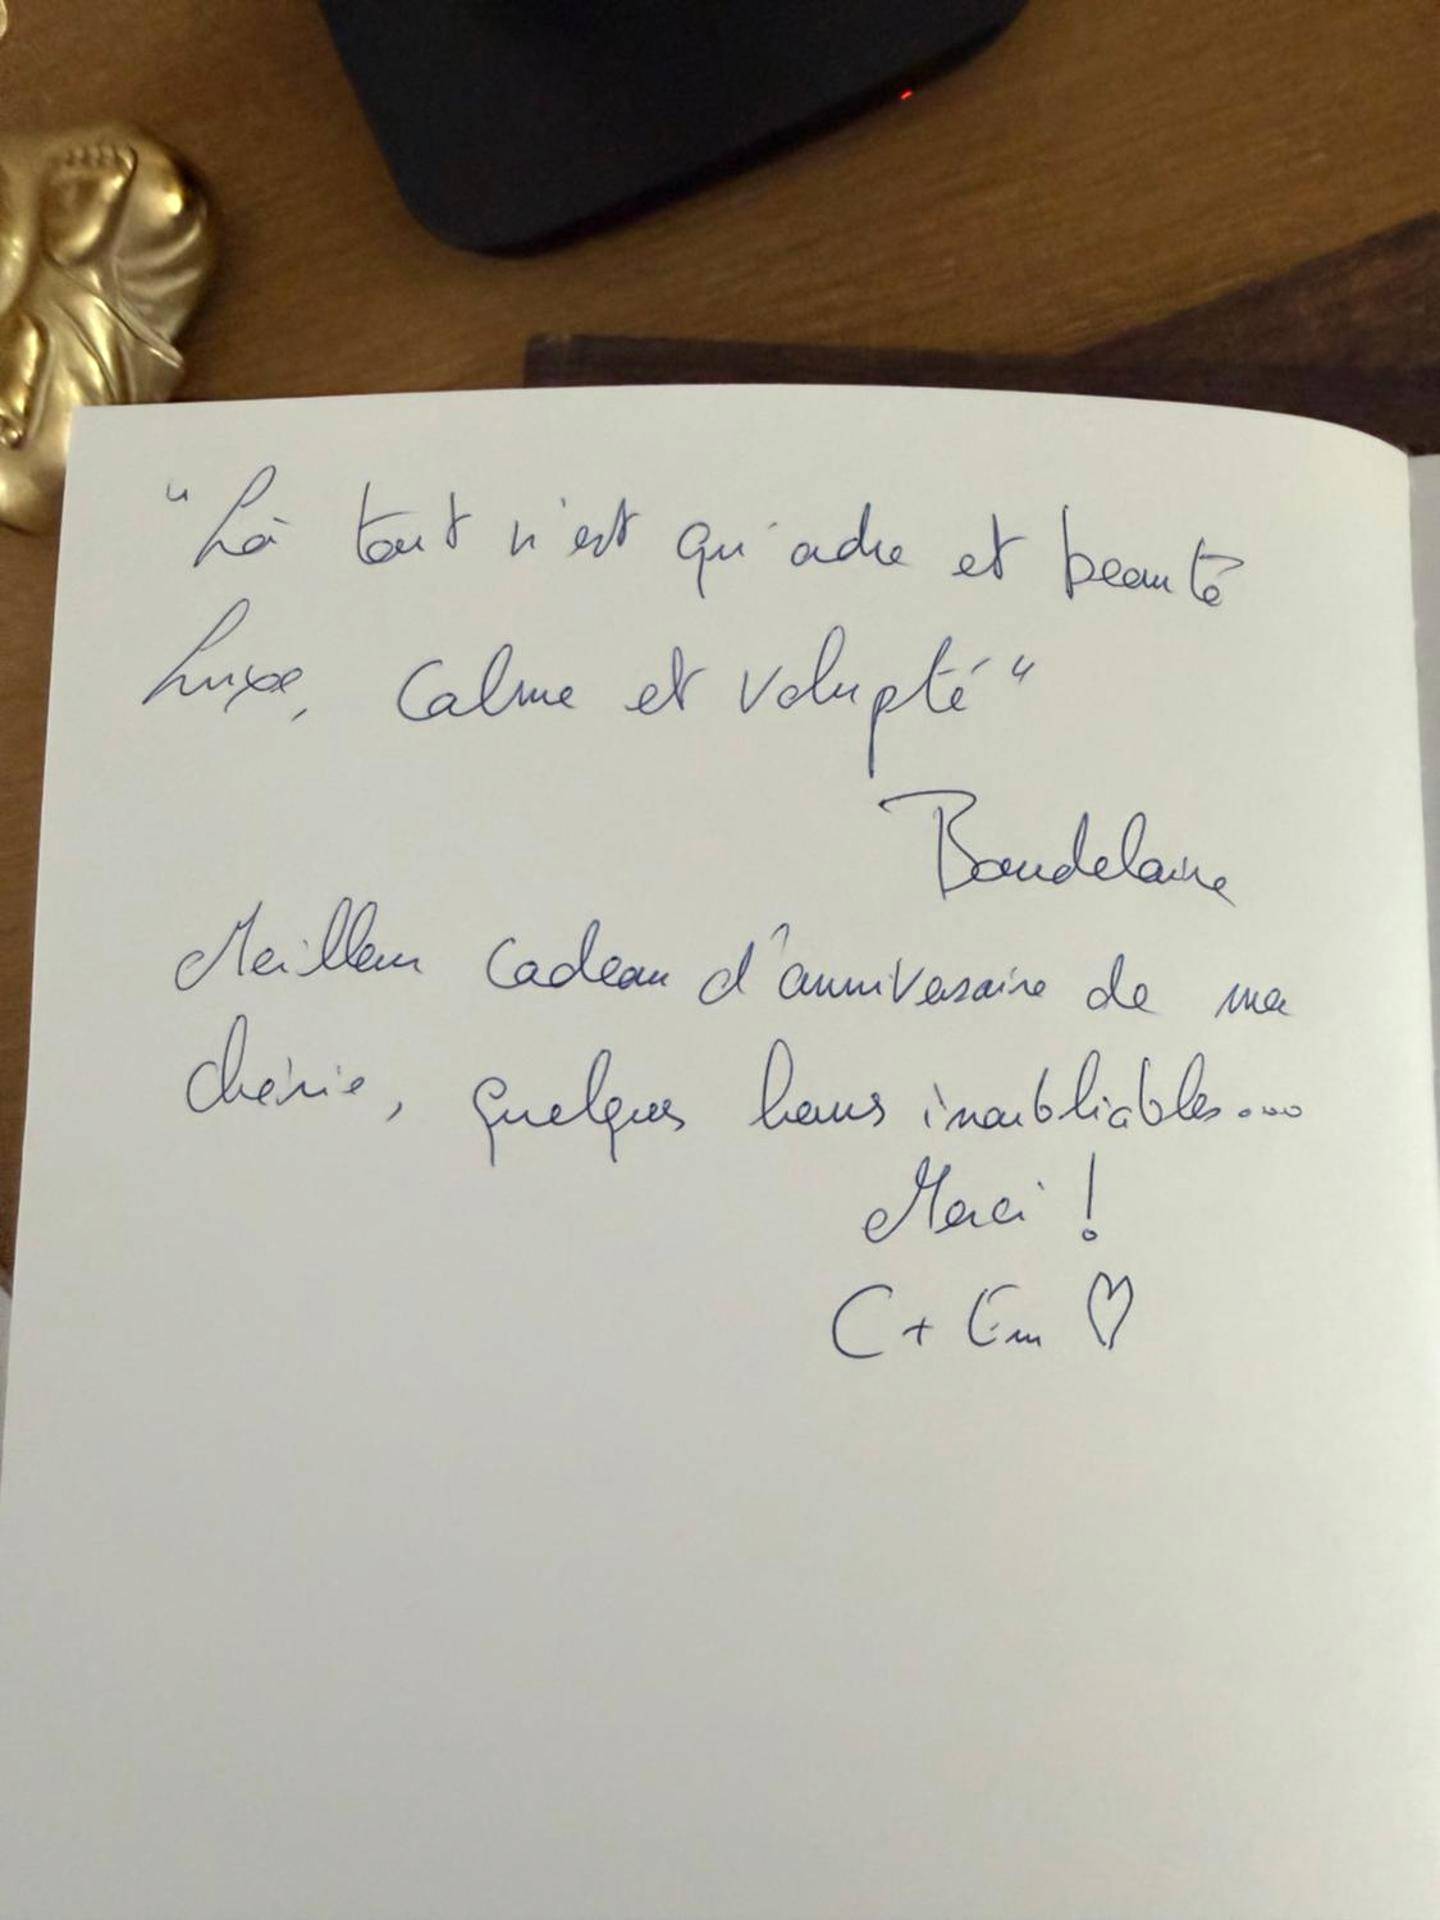 "Là tout n'est qu'ordre et beauté
Luxe, Calme et Volupté"
Baudelaire
Meilleur cadeau d'anniversaire de ma
chérie, quelques heures inoubliables...
Merci !
C + Em ♡